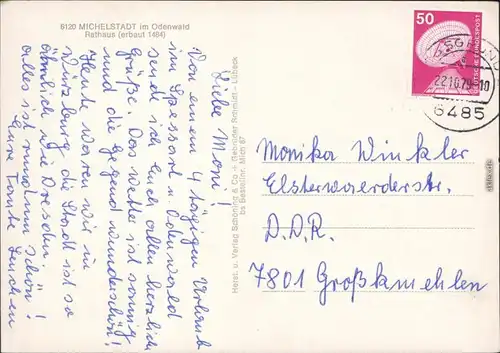 6120 MICHELSTADT im Odenwald
Rathaus (erbaut 1484)
Liebe Moni!
Von einem 4 tägigen Urlaub
im Spessart u. Odenwald
sende ich Euch allen herzliche
Grüße. Das Wetter ist sonnig
und die Gegend wunderschön!
Heute waren wir in
Würzburg, die Stadt ist so
ähnlich wie Dresden!
Alles ist rundum schön!
Eure Tante
Herst. u. Verlag Schöning & Co + Gebrüder Schmidt - Lübeck
bs Bestellnr. Mich 67
50
DEUTSCHE BUNDESPOST
22.10.79-10
6485
Monika Winkler
Elsterwerderstr.
D.D.R.
7801 Großkmehlen